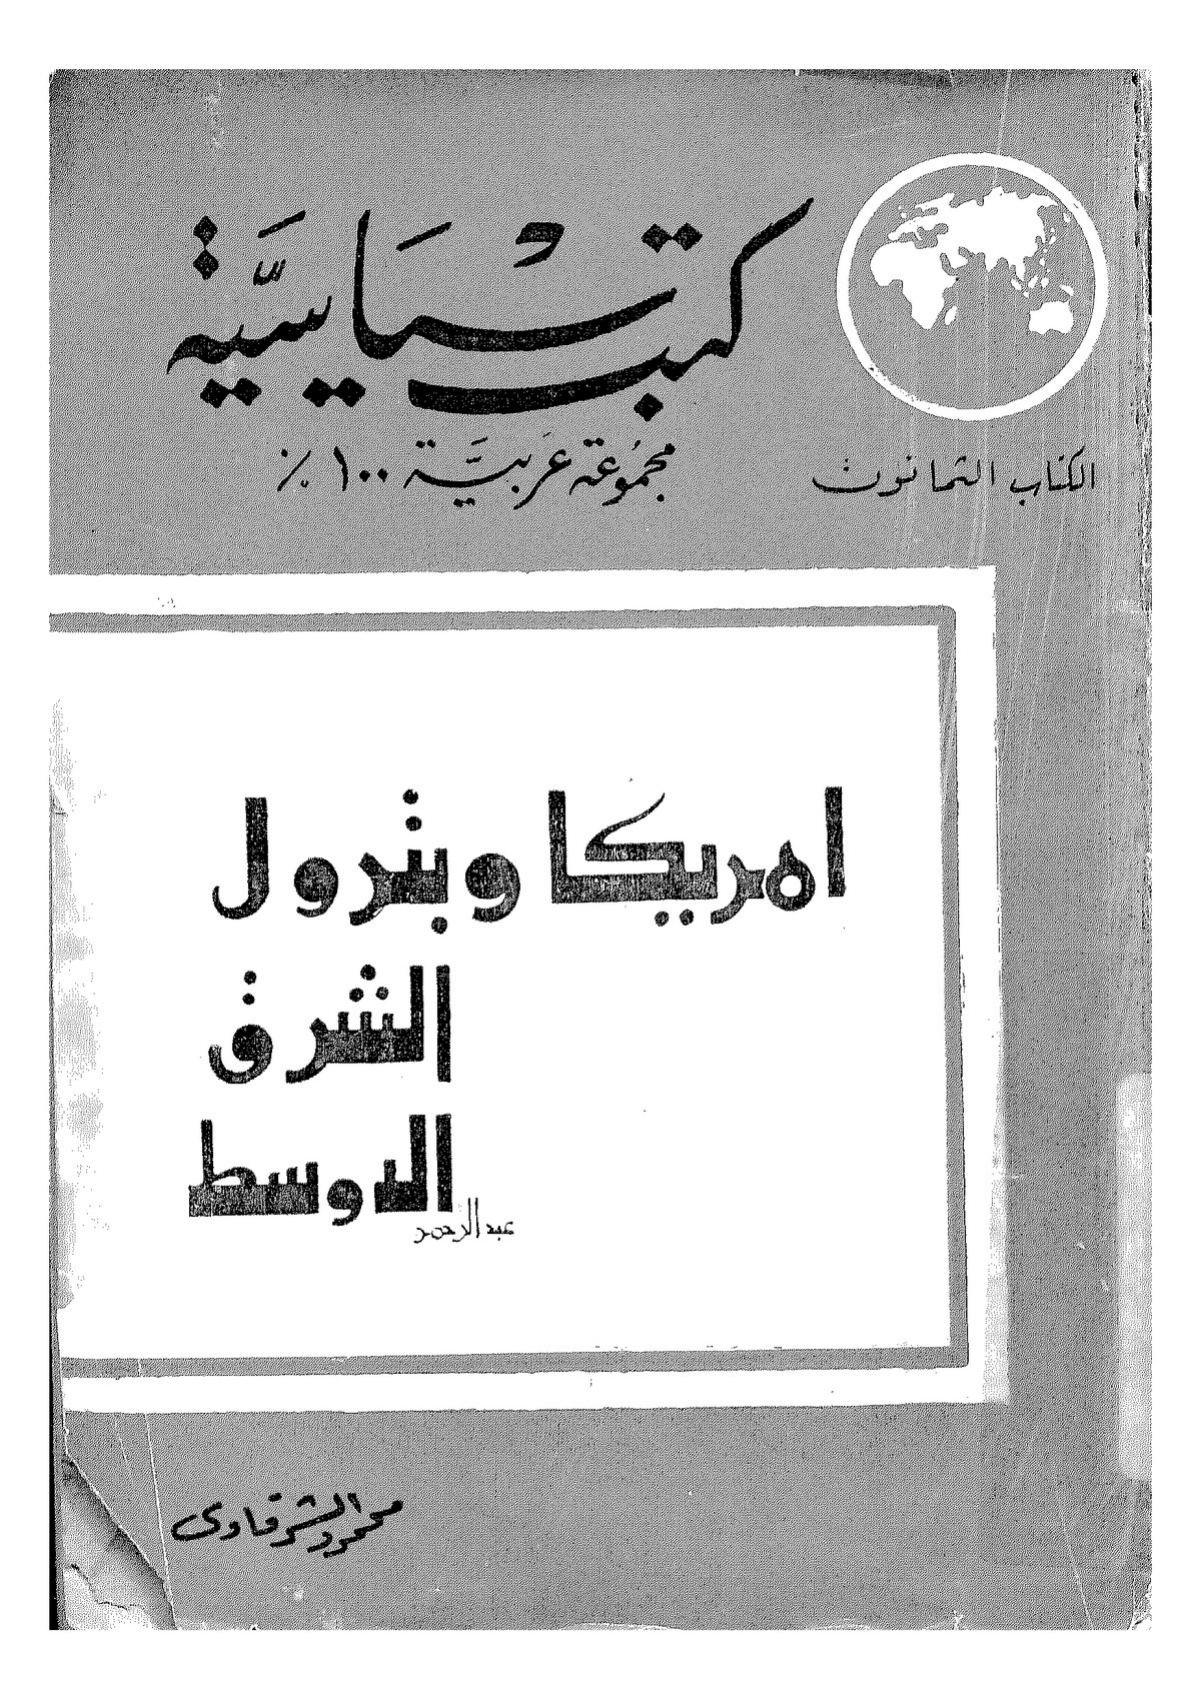 كتب سياسية
مجموعة عربية ١٠٠ ٪
الكتاب الثمانون
امريكا وبترول
الشرق
الاوسط
عبد الرحمن
محمود الشرقاوى